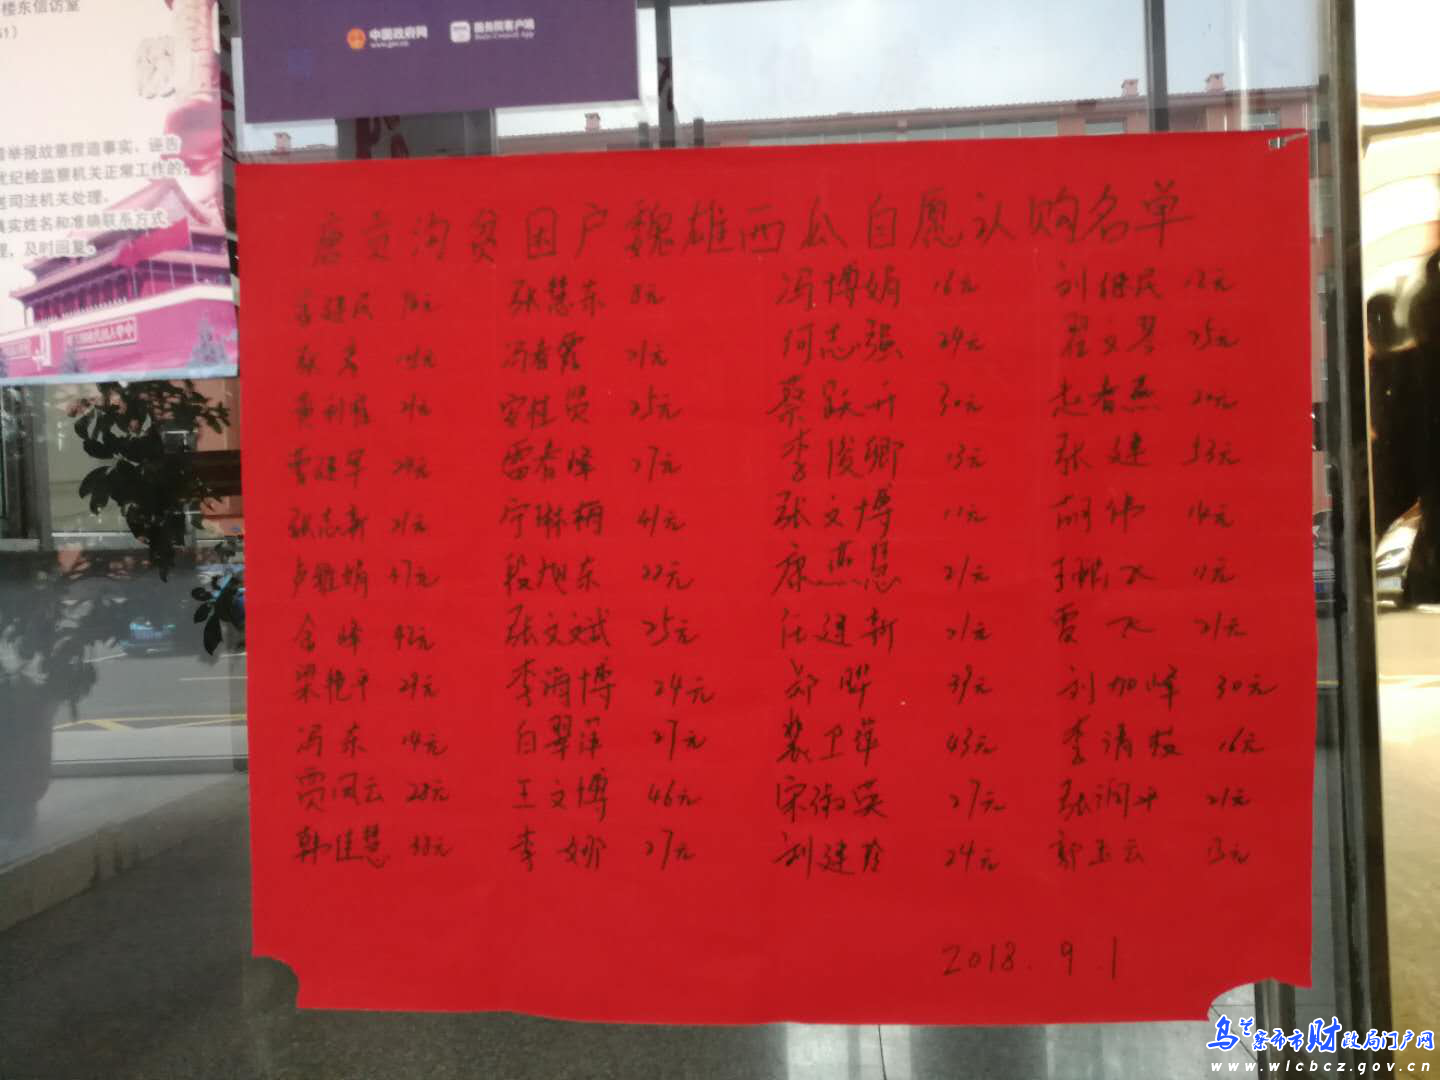 楼东信访室
中国政府网
www.gov.cn
国务院客户端
State Council App
举报故意捏造事实、诬告
纪检监察机关正常工作的,
司法机关处理。
真实姓名和准确联系方式,
理,及时回复。
唐贡沟贫困户魏雄西瓜自愿认购名单
张慧东 8元 冯博娟 16元 刘继民 12元
冯春霞 21元 何志强 24元 翟文琴 25元
安桂贤 25元 蔡跃升 30元 赵春燕 20元
雷春峰 27元 李俊卿 13元 张建 53元
张志新 21元 宁琳楠 41元 张文博 11元 胡伟 14元
卢雅娟 37元 段旭东 22元 康燕慧 21元
金峰 42元 张文斌 25元 任建新 21元 21元
梁艳平 29元 李海博 24元 郑晔 39元 刘加峰 30元
冯东 14元 白翠萍 27元 裴卫萍 43元 李清枝 16元
贾凤云 28元 王文博 46元 宋淑英 27元 张润平 21元
韩佳慧 38元 李娜 27元 刘建春 24元 郭玉云 13元
2018.9.1
乌兰察布市财政局门户网
www.wlcbcz.gov.cn